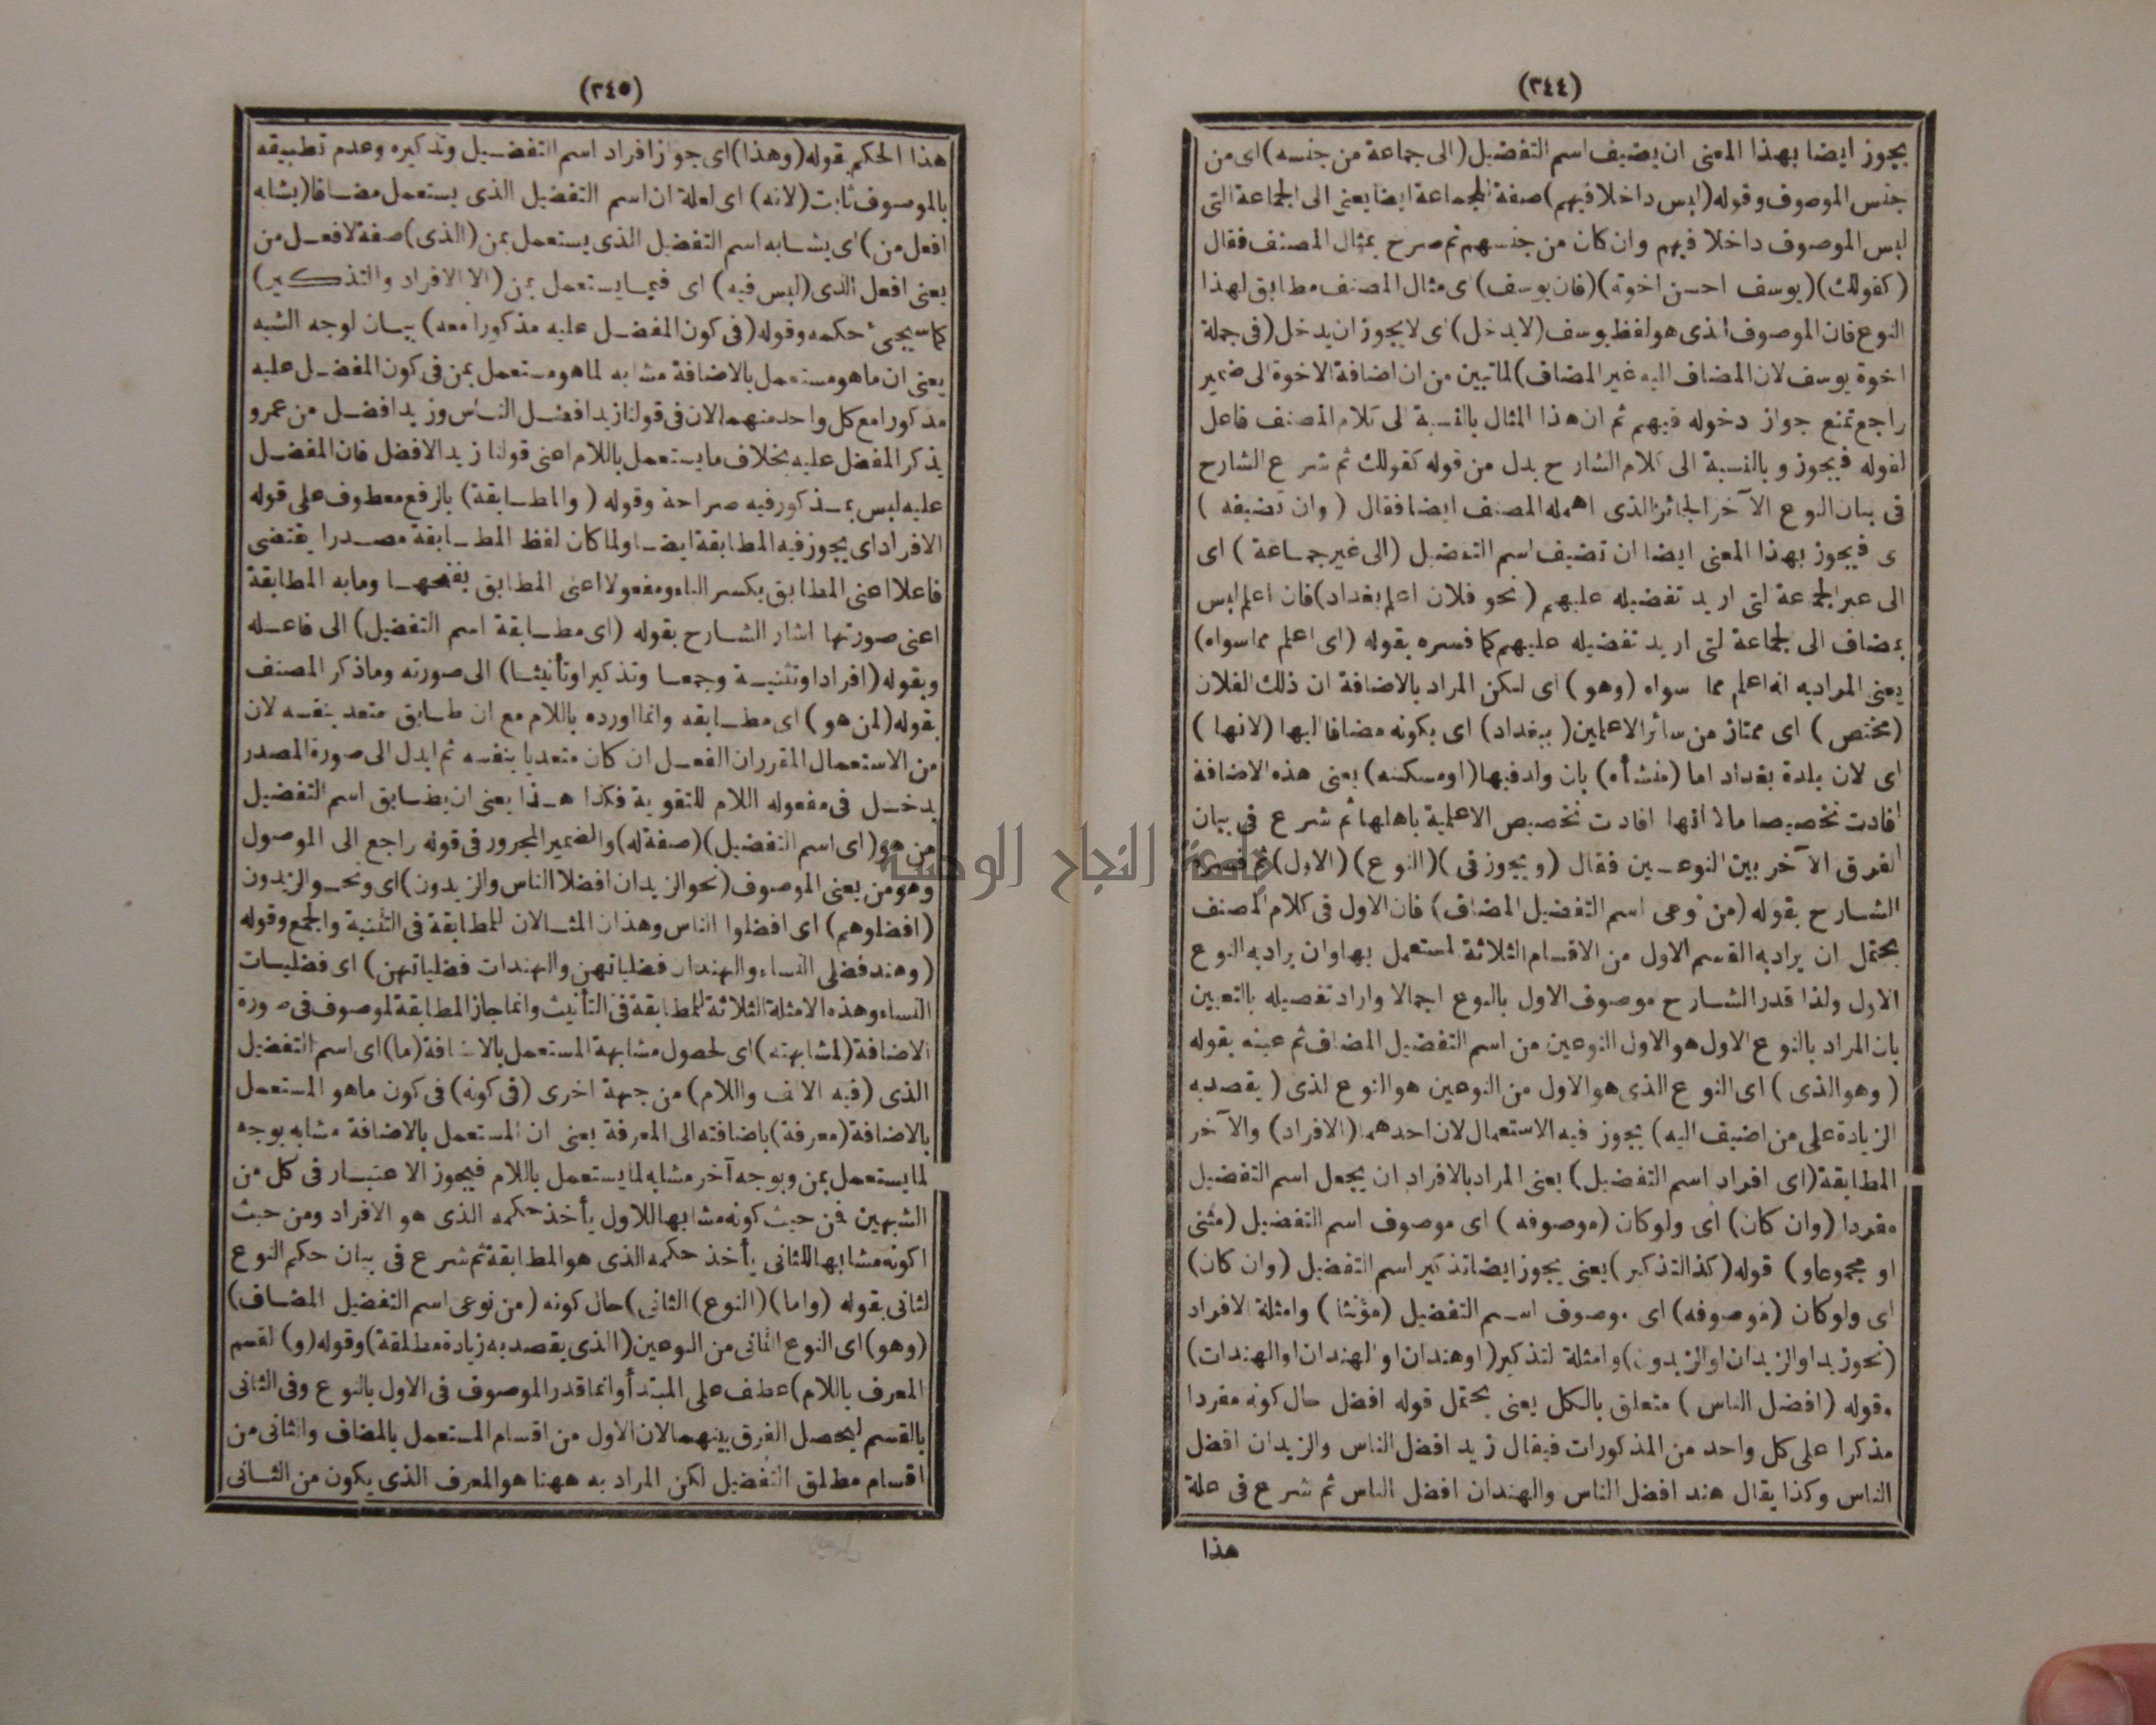 (٣٤٤)
يجوز ايضا بهذا المعنى ان يضيف اسم التفضيل (الى جماعة من جنسه) اى من
جنس الموصوف وقوله (ليس داخلا فيهم) صفة لجماعة ايضا يعنى الى الجماعة التى
ليس الموصوف داخلا فيهم وان كان من جنسهم ثم صرح بمثال المصنف فقال
(كقولك) (يوسف احسن اخوة) (فان يوسف) اى مثال المصنف مطابق لهذا
النوع فان الموصوف الذى هو لفظ يوسف (لا يدخل) اى لا يجوز ان يدخل (فى جملة
اخوة يوسف لان المضاف اليه غير المضاف) لما تبين من ان اضافة الاخوة الى ضمير
راجع تمنع جواز دخوله فيهم ثم ان هذا المثال بالنسبة الى كلام المصنف فاعل
لقوله فيجوز وبالنسبة الى كلام الشارح بدل من قوله كقولك ثم شرع الشارح
فى بيان النوع الآخر الجائز الذى اهمله المصنف ايضا فقال (وان تضيفه)
ى فيجوز بهذا المعنى ايضا ان تضيف اسم التفضيل (الى غير جماعة) اى
الى غير الجماعة التى اريد تفضيله عليهم (نحو فلان اعلم بغداد) فان اعلم ليس
بمضاف الى الجماعة التى اريد تفضيله عليهم كما فسره بقوله (اى اعلم مما سواه)
يعنى المراد به انه اعلم مما سواه (وهو) اى لكن المراد بالاضافة ان ذلك الفلان
(مختص) اى ممتاز من سائر الاعلمين (ببغداد) اى بكونه مضافا اليها (لانها)
اى لان بلدة بغداد اما (منشأه) بان ولد فيها (او مسكنه) يعنى هذه الاضافة
افادت تخصيصا مالا انها افادت تخصيص الاعلمية باهلها ثم شرع فى بيان
الفرق الآخر بين النوعين فقال (ويجوز فى) (النوع) (الاول) ثم فسره
الشارح بقوله (من نوعى اسم التفضيل المضاف) فان الاول فى كلام المصنف
يحتمل ان يراد به القسم الاول من الاقسام الثلاثة المستعمل بها وان يراد به النوع
الاول ولذا قدر الشارح موصوف الاول بالنوع اجمالا واراد تفصيله بالتعيين
بان المراد بالنوع الاول هو الاول النوعين من اسم التفضيل المضاف ثم عينه بقوله
(وهو الذى) اى النوع الذى هو الاول من النوعين هو النوع لذى (يقصد به
الزيادة على من اضيف اليه) يجوز فيه الاستعمال لان احدهما (الافراد) والآخر
المطابقة (اى افراد اسم التفضيل) يعنى المراد بالافراد ان يجعل اسم التفضيل
مفردا (وان كان) اى ولو كان (موصوفه) اى موصوف اسم التفضيل (مثنى
او مجموعا و) قوله (كذا التذكير) يعنى يجوز ايضا تذكير اسم التفضيل (وان كان)
اى ولو كان (موصوفه) اى موصوف اسم التفضيل (مؤنثا) وامثلة الافراد
(نحو زيد او الزيدان او الزيدون) وامثلة لتذكير (او هند ان او الهندان او الهندات)
وقوله (افضل الناس) متعلق بالكل يعنى يحتمل قوله افضل حال كونه مفردا
مذكرا على كل واحد من المذكورات فيقال زيد افضل الناس والزيدان افضل
الناس وكذا يقال هند افضل الناس والهندان افضل الناس ثم شرع فى علة
هذا
(٣٤٥)
هذا الحكم بقوله (وهذا) اى جواز افراد اسم التفضيل وتذكيره وعدم تطبيقه
بالموصوف ثابت (لانه) اى لعلة ان اسم التفضيل الذى يستعمل مضافا (يشابه
افعل من) اى يشابه اسم التفضيل الذى يستعمل بمن (الذى) صفة لافعل من
يعنى افعل الذى (ليس فيه) اى فيما يستعمل بمن (الا الافراد والتذكير)
كما سيجئ حكمه وقوله (فى كون المفضل عليه مذكورا معه) بيان لوجه الشبه
يعنى ان ما هو مستعمل بالاضافة مشابه لما هو مستعمل بمن فى كون المفضل عليه
مذكورا مع كل واحد منهما لان فى قولنا زيد افضل الناس وزيد افضل من عمرو
يذكر المفضل عليه بخلاف ما يستعمل باللام اعنى قولنا زيد الافضل فان المفضل
عليه ليس بمذكور فيه صراحة وقوله (والمطابقة) بالرفع معطوف على قوله
الافراد اى يجوز فيه المطابقة ايضا ولما كان لفظ المطابقة مصدرا يقتضى
فاعلا اعنى المطابق بكسر الباء ومفعولا اعنى المطابق بفتحها وما به المطابقة
اعنى صورتها اشار الشارح بقوله (اى مطابقة اسم التفضيل) الى فاعله
وبقوله (افرادا وتثنية وجمعا وتذكيرا وتأنيثا) الى صورته وما ذكر المصنف
بقوله (لمن هو) اى مطابقه وانما اورده باللام مع ان طابق متعد بنفسه لان
من الاستعمال المقرر ان الفعل ان كان متعديا بنفسه ثم ابدل الى صورة المصدر
يدخل فى مفعوله اللام للتقوية فكذا هذا يعنى ان يطابق اسم التفضيل
من هو (اى اسم التفضيل) (صفة له) والضمير المجرور فى قوله راجع الى الموصول
وهو من يعنى الموصوف (نحو الزيدان افضلا الناس والزيدون) اى ونحو الزيدون
(افضلوهم) اى افضلوا الناس وهذان المثالان للمطابقة فى التثنية والجمع وقوله
(وهند فضلى النساء والهندان فضلياتهن والهندات فضلياتهن) اى فضليات
النساء وهذه الامثلة الثلاثة للمطابقة فى التأنيث وانما جاز المطابقة لموصوف فى صورة
الاضافة (لمشابهته) اى لحصول مشابهة المستعمل بالاضافة (ما) اى اسم التفضيل
الذى (فيه الالف واللام) من جهة اخرى (فى كونه) فى كون ما هو المستعمل
بالاضافة (معرفة) باضافته الى المعرفة يعنى ان المستعمل بالاضافة مشابه بوجه
لما يستعمل بمن وبوجه آخر مشابه لما يستعمل باللام فيجوز الاعتبار فى كل من
الشبهين فمن حيث كونه مشابها للاول يأخذ حكمه الذى هو الافراد ومن حيث
كونه مشابها للثانى يأخذ حكمه الذى هو المطابقة ثم شرع فى بيان حكم النوع
لثانى بقوله (واما) (النوع) (الثانى) حال كونه (من نوعى اسم التفضيل المضاف)
(وهو) اى النوع الثانى من النوعين (الذى يقصد به زيادة مطلقة) وقوله (و) لقسم
المعرف باللام) عطف على المبتدأ وانما قدر الموصوف فى الاول بالنوع وفى الثانى
بالقسم ليحصل الفرق بينهما لان الاول من اقسام المستعمل بالمضاف والثانى من
اقسام مطلق التفضيل لكن المراد به ههنا هو المعرف الذى يكون من الثانى